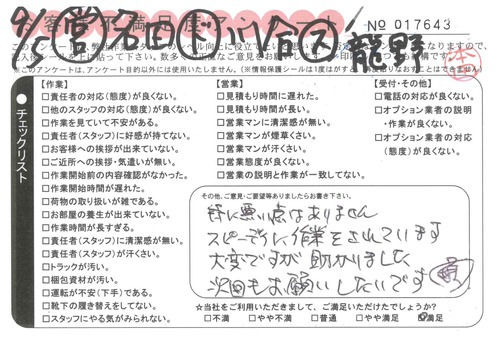 お客様不満足度アンケート
№ 017643
9/6 営 名田 ド 川合 ス 龍野
【作業】
□責任者の対応(態度)が良くない。
□他のスタッフの対応(態度)が良くない。
□作業を見ていて不安がある。
□責任者(スタッフ)に好感が持てない。
□お客様への挨拶が出来ていない。
□ご近所への挨拶・気遣いが無い。
□作業開始前の内容確認がなかった。
□作業開始時間が遅れた。
□荷物の取り扱いが雑である。
□お部屋の養生が出来ていない。
□作業時間が長すぎる。
□責任者(スタッフ)に清潔感が無い。
□責任者(スタッフ)が汗くさい。
□トラックが汚い。
□梱包資材が汚い。
□運転が不安(下手)である。
□靴下の履き替えをしてない。
□スタッフにやる気がみられない。
【営業】
□見積もり時間に遅れた。
□見積もり時間が長い。
□営業マンに清潔感が無い。
□営業マンが煙草くさい。
□営業マンが汗くさい。
□営業態度が良くない。
□営業の説明と作業が一致してない。
【受付・その他】
□電話の対応が良くない。
□オプション業者の説明・作業が良くない。
□オプション業者の対応(態度)が良くない。
●チェックリスト
その他、ご意見・ご要望等ありましたらお書き下さい。
特に悪い点はありません
スピーディに作業をされています
大変ですが助かりました
次回もお願いしたいです
☆当社をご利用いただきまして、ご満足いただけたでしょうか?
□不満 □やや不満 □普通 □やや満足 ☑満足